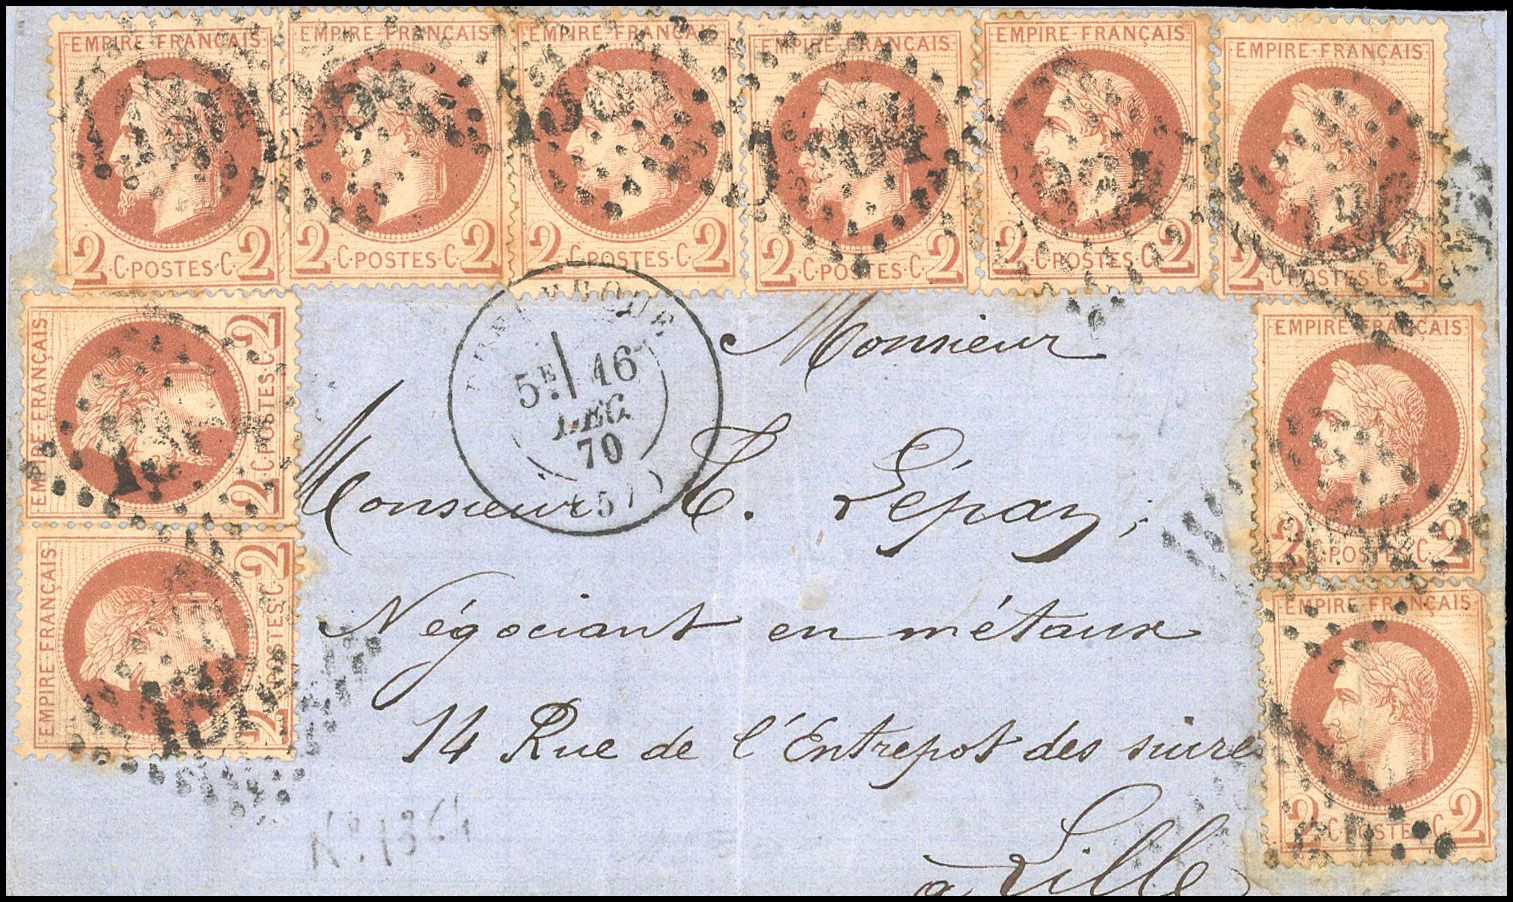 EMPIRE FRANÇAIS
2 C·POSTES·C 2
EMPIRE FRANÇAIS
2 C·POSTES·C 2
EMPIRE FRANÇAIS
2 C·POSTES·C 2
EMPIRE FRANÇAIS
2 C·POSTES·C 2
EMPIRE FRANÇAIS
2 C·POSTES·C 2
EMPIRE FRANÇAIS
2 C·POSTES·C 2
EMPIRE FRANÇAIS
2 C·POSTES·C 2
EMPIRE FRANÇAIS
2 C·POSTES·C 2
EMPIRE FRANÇAIS
2 C·POSTES·C 2
EMPIRE FRANÇAIS
2 C·POSTES·C 2
DUNKERQUE
5E 16
DEC.
70
(57)
Monsieur
Monsieur T. Lépay,
Négociant en métaux
14 Rue de l'Entrepot des sucre
à Lille
Nº.1364